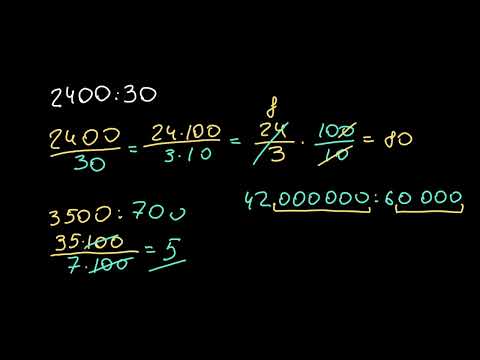 2400:30
2400/30 = 24·100/3·10 = 24/3 · 100/10 = 80
8
42 000000:60 000
3500:700
35·100/7·100 = 5